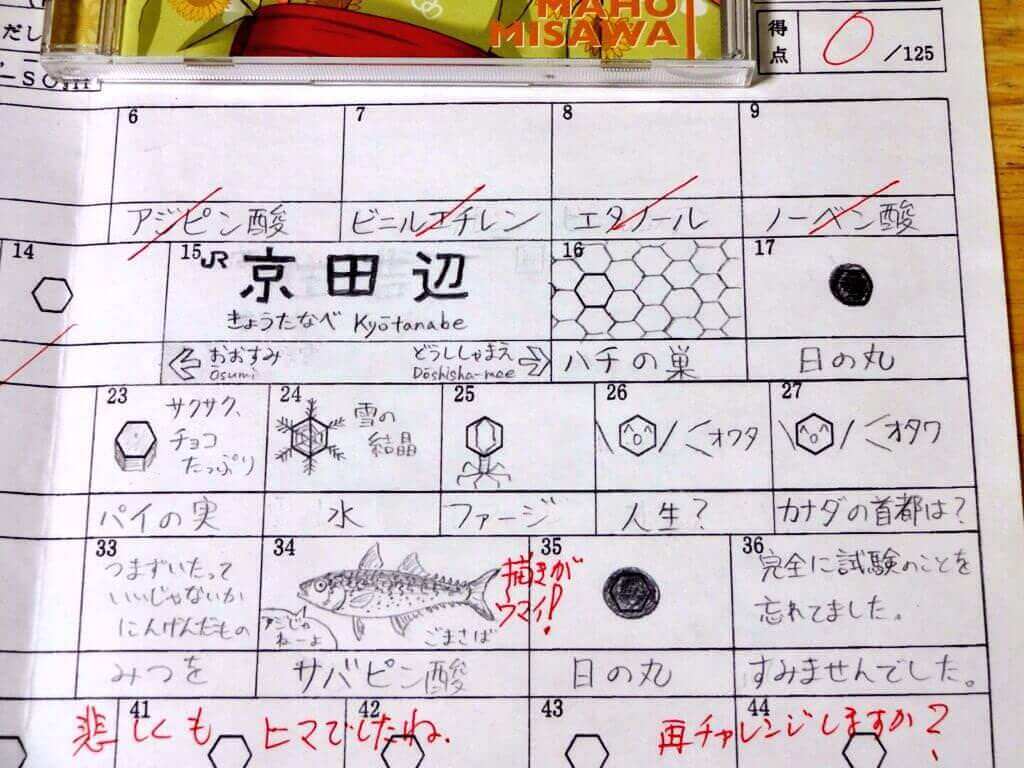 MAHO
MISAWA
だし
得点
0 /125
6
7
8
9
アジピン酸
ビニルエチレン
エタノール
ノーベン酸
14
15
JR 京田辺
きょうたなべ Kyōtanabe
おおすみ
Ōsumi
どうししゃまえ
Dōshisha-mae
16
ハチの巣
17
日の丸
23
サクサク、
チョコ
たっぷり
パイの実
24
雪の
結晶
水
25
ファージ
26
\ / <オワタ
人生?
27
\ / <オタワ
カナダの首都は?
33
つまずいたって
いいじゃないか
にんげんだもの
みつを
34
アジじゃ
ねーよ
ごまさば
サバピン酸
描きが
ウマイ!
35
日の丸
36
完全に試験のことを
忘れてました。
すみませんでした。
41
42
43
44
悲しくもヒマでしたね.
再チャレンジしますか?